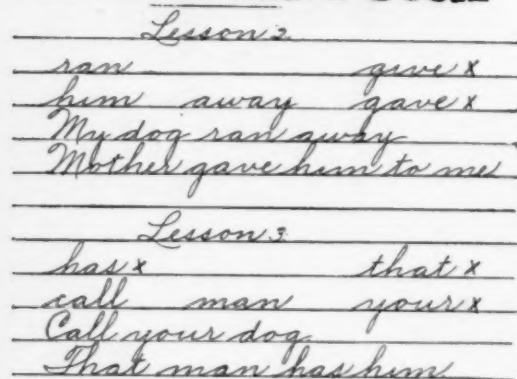 Lesson 2
ran give x
him away gave x
My dog ran away
Mother gave him to me
Lesson 3
has x that x
call man your x
Call your dog
That man has him